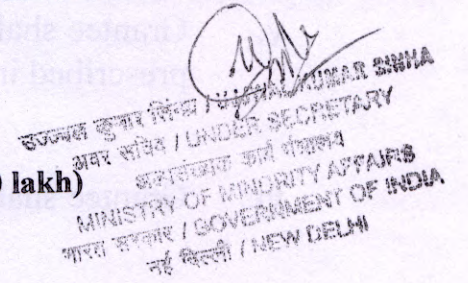 उज्ज्वल कुमार सिंहा / UJJWAL KUMAR SINHA
अवर सचिव / UNDER SECRETARY
अल्पसंख्यक कार्य मंत्रालय
lakh)
MINISTRY OF MINORITY AFFAIRS
भारत सरकार / GOVERNMENT OF INDIA
नई दिल्ली / NEW DELHI